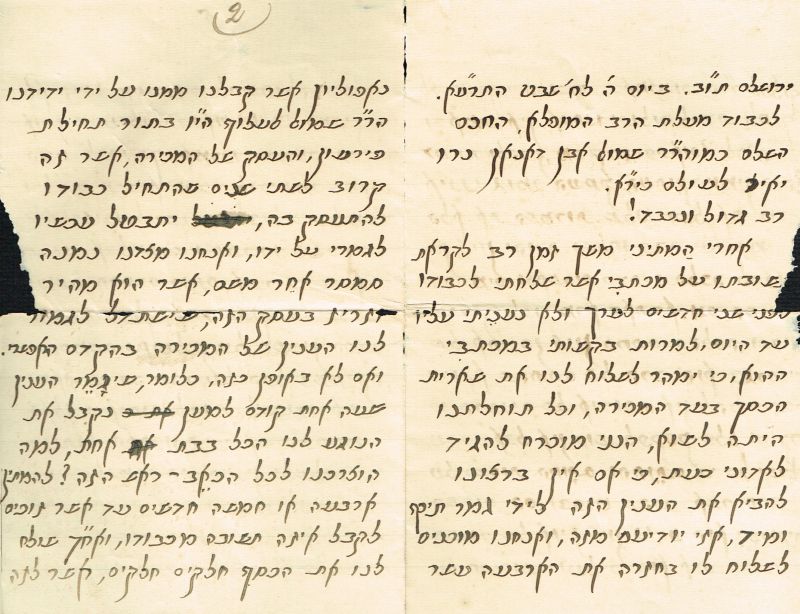 ירושלם ת"ו. ביום ה' לח' שבט התרע"א.
לכבוד מעלת הרב המופלא, החכם
השלם כמוהר"ר שמואל אבן דאנאן נרו
יאיר לעולם כי"א.
רב גדול ונכבד!
אחרי המתיני משך זמן רב לקראת
תשובתו על מכתבי אשר שלחתי לכבודו
לפני שני חדשים לערך ולא נעניתי עליו
עד היום, למרות בקשותי במכתבי
ההוא, כי ימהר לשלוח לנו את שארית
הכסף בעד המכירה, וכל תוחלתנו
היתה לשוא, הנני מוכרח להגיד
לאדוני כעת, כי אם אין ברצונו
להביא את הענין הזה לידי גמר תיכף
ומיד, אזי יודיעם מזה, ואנחנו מוכנים
לשלוח לו בחזרה את הארבעה עשר
2
נאפוליון אשר קבלנו ממנו על ידי ידידנו
הר"ר שמואל לעלוף הי"ו בתור תחילת
פירעון, והעסק של המכירה, אשר זה
קרוב לשתי שנים שהתחיל כבודו
להתעסק בה, יתבטל עכשיו
לגמרי על ידו, ואנחנו מצדנו נמנה
סמסר אחר משם, אשר הוא מהיר
וזריז בעסק הזה, שישתדל לגמור
לנו הענין של המכירה בהקדם האפשרי.
ואם לא באופן כזה, כלומר, שיגמר הענין
שעה אחת קודם למען נקבל את
הנוגע לנו הכל בבת אחת, למה
הוצרכנו לכל הכאב-ראש הזה? להמתין
ארבעה או חמשה חדשים עד אשר זוכים
לקבל איזה תשובה מכבודו, ואח"ך שולח
לנו את הכסף חלקים חלקים, אשר לזה